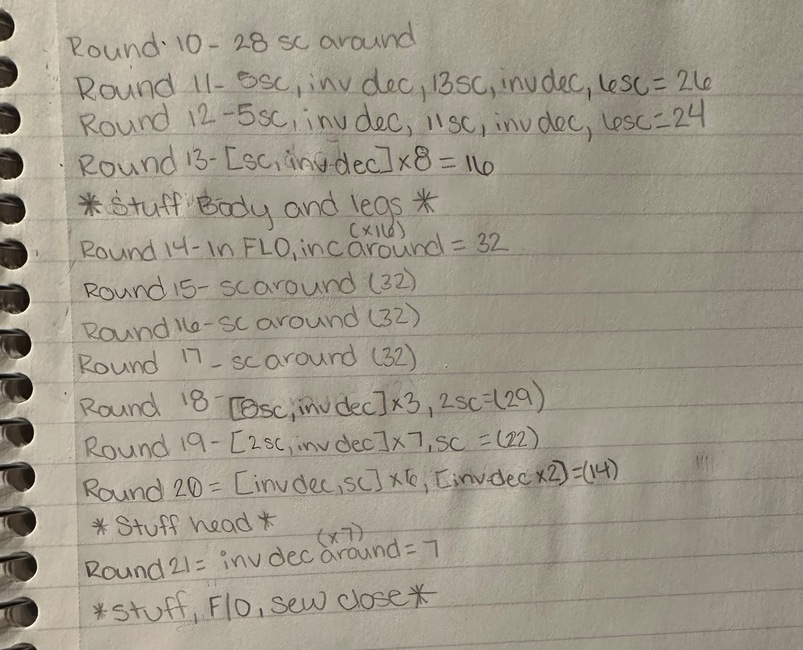 Round 10 - 28 sc around
Round 11 - 5sc, inv dec, 13sc, inv dec, 6sc = 26
Round 12 - 5sc, inv dec, 11sc, inv dec, 6sc = 24
Round 13 - [sc, inv dec] x 8 = 16
* Stuff Body and legs *
(x16)
Round 14 - In FLO, inc around = 32
Round 15 - sc around (32)
Round 16 - sc around (32)
Round 17 - sc around (32)
Round 18 - [8sc, inv dec] x 3, 2sc = (29)
Round 19 - [2sc, inv dec] x 7, sc = (22)
Round 20 = [inv dec, sc] x 6, [inv dec x 2] = (14)
* Stuff head *
(x7)
Round 21 = inv dec around = 7
* Stuff, F/O, sew close *